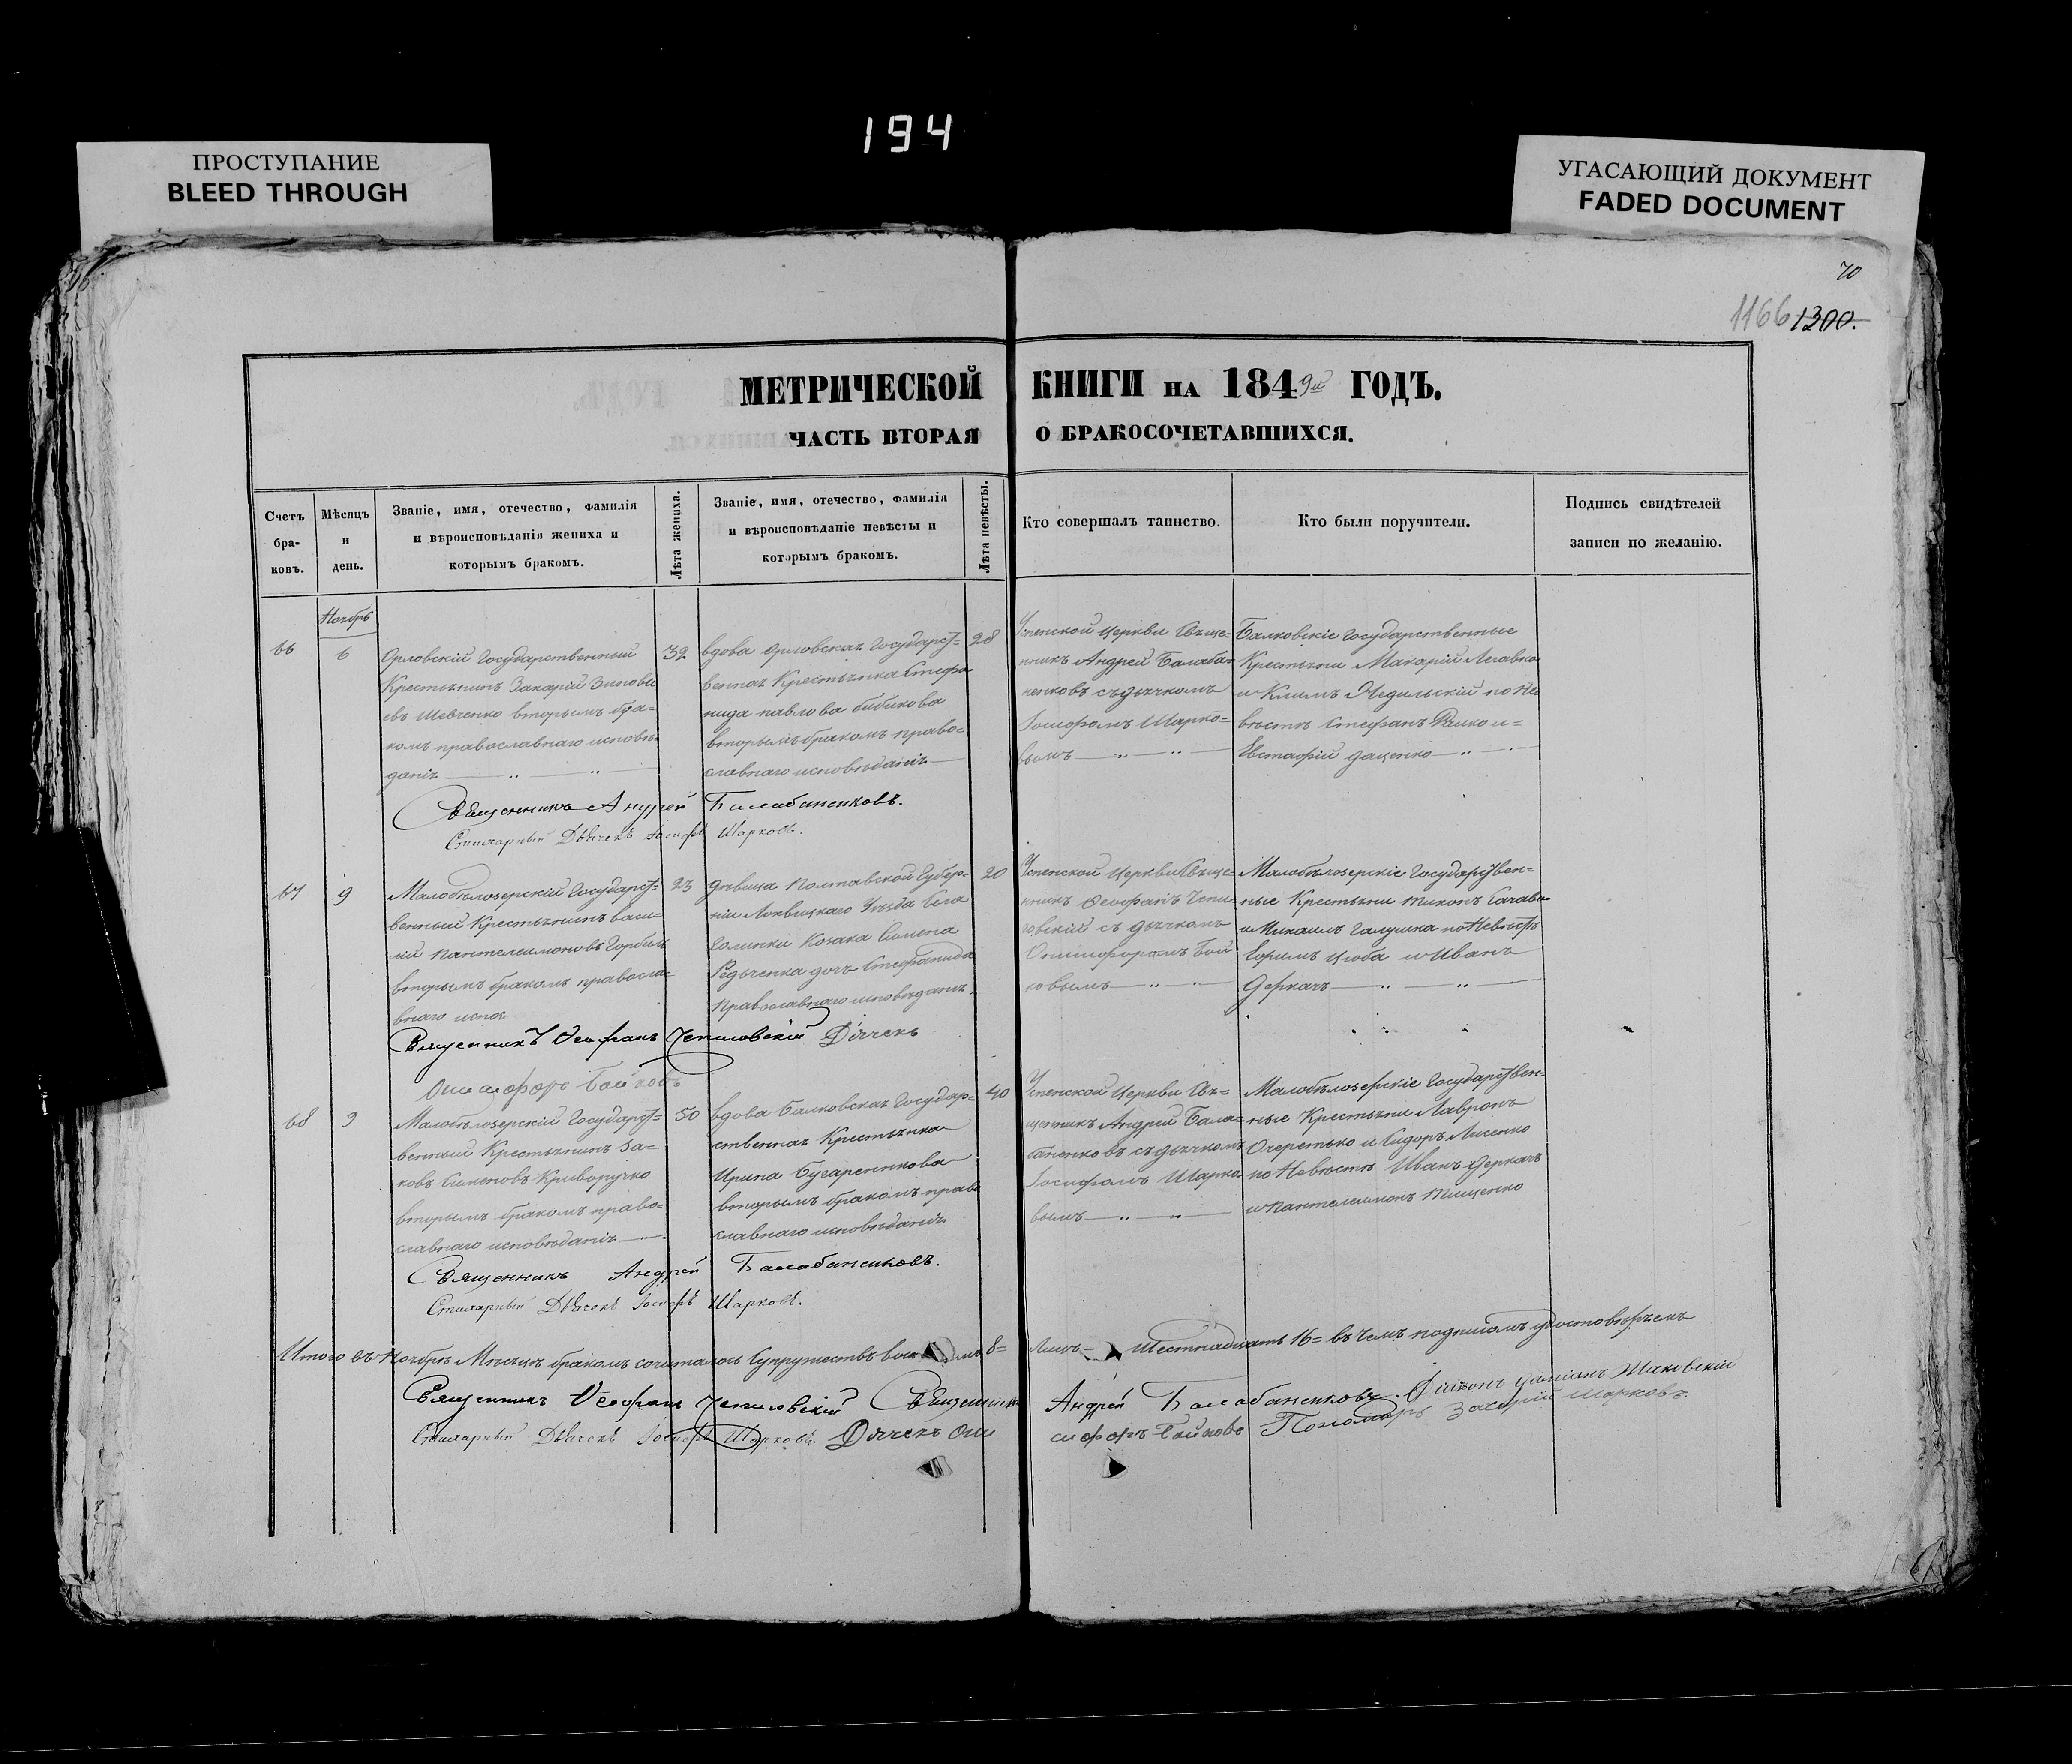 194
ПРОСТУПАНИЕ
BLEED THROUGH
УГАСАЮЩИЙ ДОКУМЕНТ
FADED DOCUMENT
70
1166 1300.
МЕТРИЧЕСКОЙ КНИГИ на 1849й ГОДЪ.
ЧАСТЬ ВТОРАЯ О БРАКОСОЧЕТАВШИХСЯ.
Счетъ
бра-
ковъ.
Мѣсяцъ
и
день.
Званіе, имя, отечество, фамилія
и вѣроисповѣданія жениха и
которымъ бракомъ.
Лѣта жениха.
Званіе, имя, отечество, фамилія
и вѣроисповѣданіе невѣсты и
которымъ бракомъ.
Лѣта невѣсты.
Кто совершалъ таинство.
Кто были поручители.
Подпись свидѣтелей
записи по желанію.
Ноябрь
66
6
Орловскій Государственный
Крестьянинъ Захарій Зиновь
евъ Шевченко вторымъ бра-
комъ православнаго исповѣ-
данія
32
вдова Орловская Государст=
венная Крестьянка Стефа
нида Павлова Бибикова
вторымъ бракомъ право-
славнаго исповѣданія
28
Успенской Церкви Свяще-
нникъ Андрей Балаба-
ненковъ съ дьячкомъ
Іосифомъ Шарко=
вымъ
Балковскіе Государственные
Крестьяни Макарій
и Климъ Недильскій по Не
вѣстѣ Стефанъ и=
Евстафій Даценко
Священникъ Андрей Балабаненковъ.
Стихарный Дьячекъ Іосифъ Шарковъ.
67
9
Малобѣлозерскій Государст=
венный Крестьянинъ Васи-
лій Пантелеимоновъ Горбил
вторымъ бракомъ правосла-
внаго испов
23
дѣвица Полтавской Губер-
ніи Лохвицкаго Уѣзда Села
Козака Симена
Редьченка дочь Стефанида
Православнаго исповѣданія
20
Успенской Церкви Свяще-
нникъ Феофанъ
съ дьячкомъ
Онисифоромъ Бой
ковымъ
Малобѣлозерскіе Государствен-
ные Крестьяни Тихонъ
и Михаилъ Галушка по Невѣстѣ
Ефимъ Цюба и Иванъ
Деркачъ
Священникъ Феофанъ Дячекъ
Онисифоръ Бойковъ
68
9
Малобѣлозерскій Государст=
венный Крестьянинъ Іа-
ковъ Симеоновъ Криворучко
вторымъ бракомъ право-
славнаго исповѣданія
50
вдова Балковская Государ=
ственная Крестьянка
Ирина Бугаренкова
вторымъ бракомъ право
славнаго исповѣданія
40
Успенской Церкви Свя-
щенникъ Андрей Бала=
баненковъ съ дьячкомъ
Іосифомъ Шарко
вымъ
Малобѣлозерскіе Государствен-
ные Крестьяни Лавронъ
Очеретько и Сидоръ Лисенко
по Невѣстѣ Иванъ Деркачъ
и Пантелеимонъ Тищенко
Священникъ Андрей Балабаненковъ.
Стихарный Дьячекъ Іосифъ Шарковъ.
Итого въ Ноябрѣ Мѣсяцѣ бракомъ сочиталось Супружествъ 8= Лицъ Шестнадцать 16= въ чемъ подписомъ удостовѣряемъ
Священникъ Феофанъ Священникъ Андрей Балабаненковъ. Діаконъ Даміанъ Маковскій
Стихарный Дьячекъ Іосифъ Шарковъ. Дячекъ Они сифоръ Бойковъ Пономарь Захарій Шарковъ.